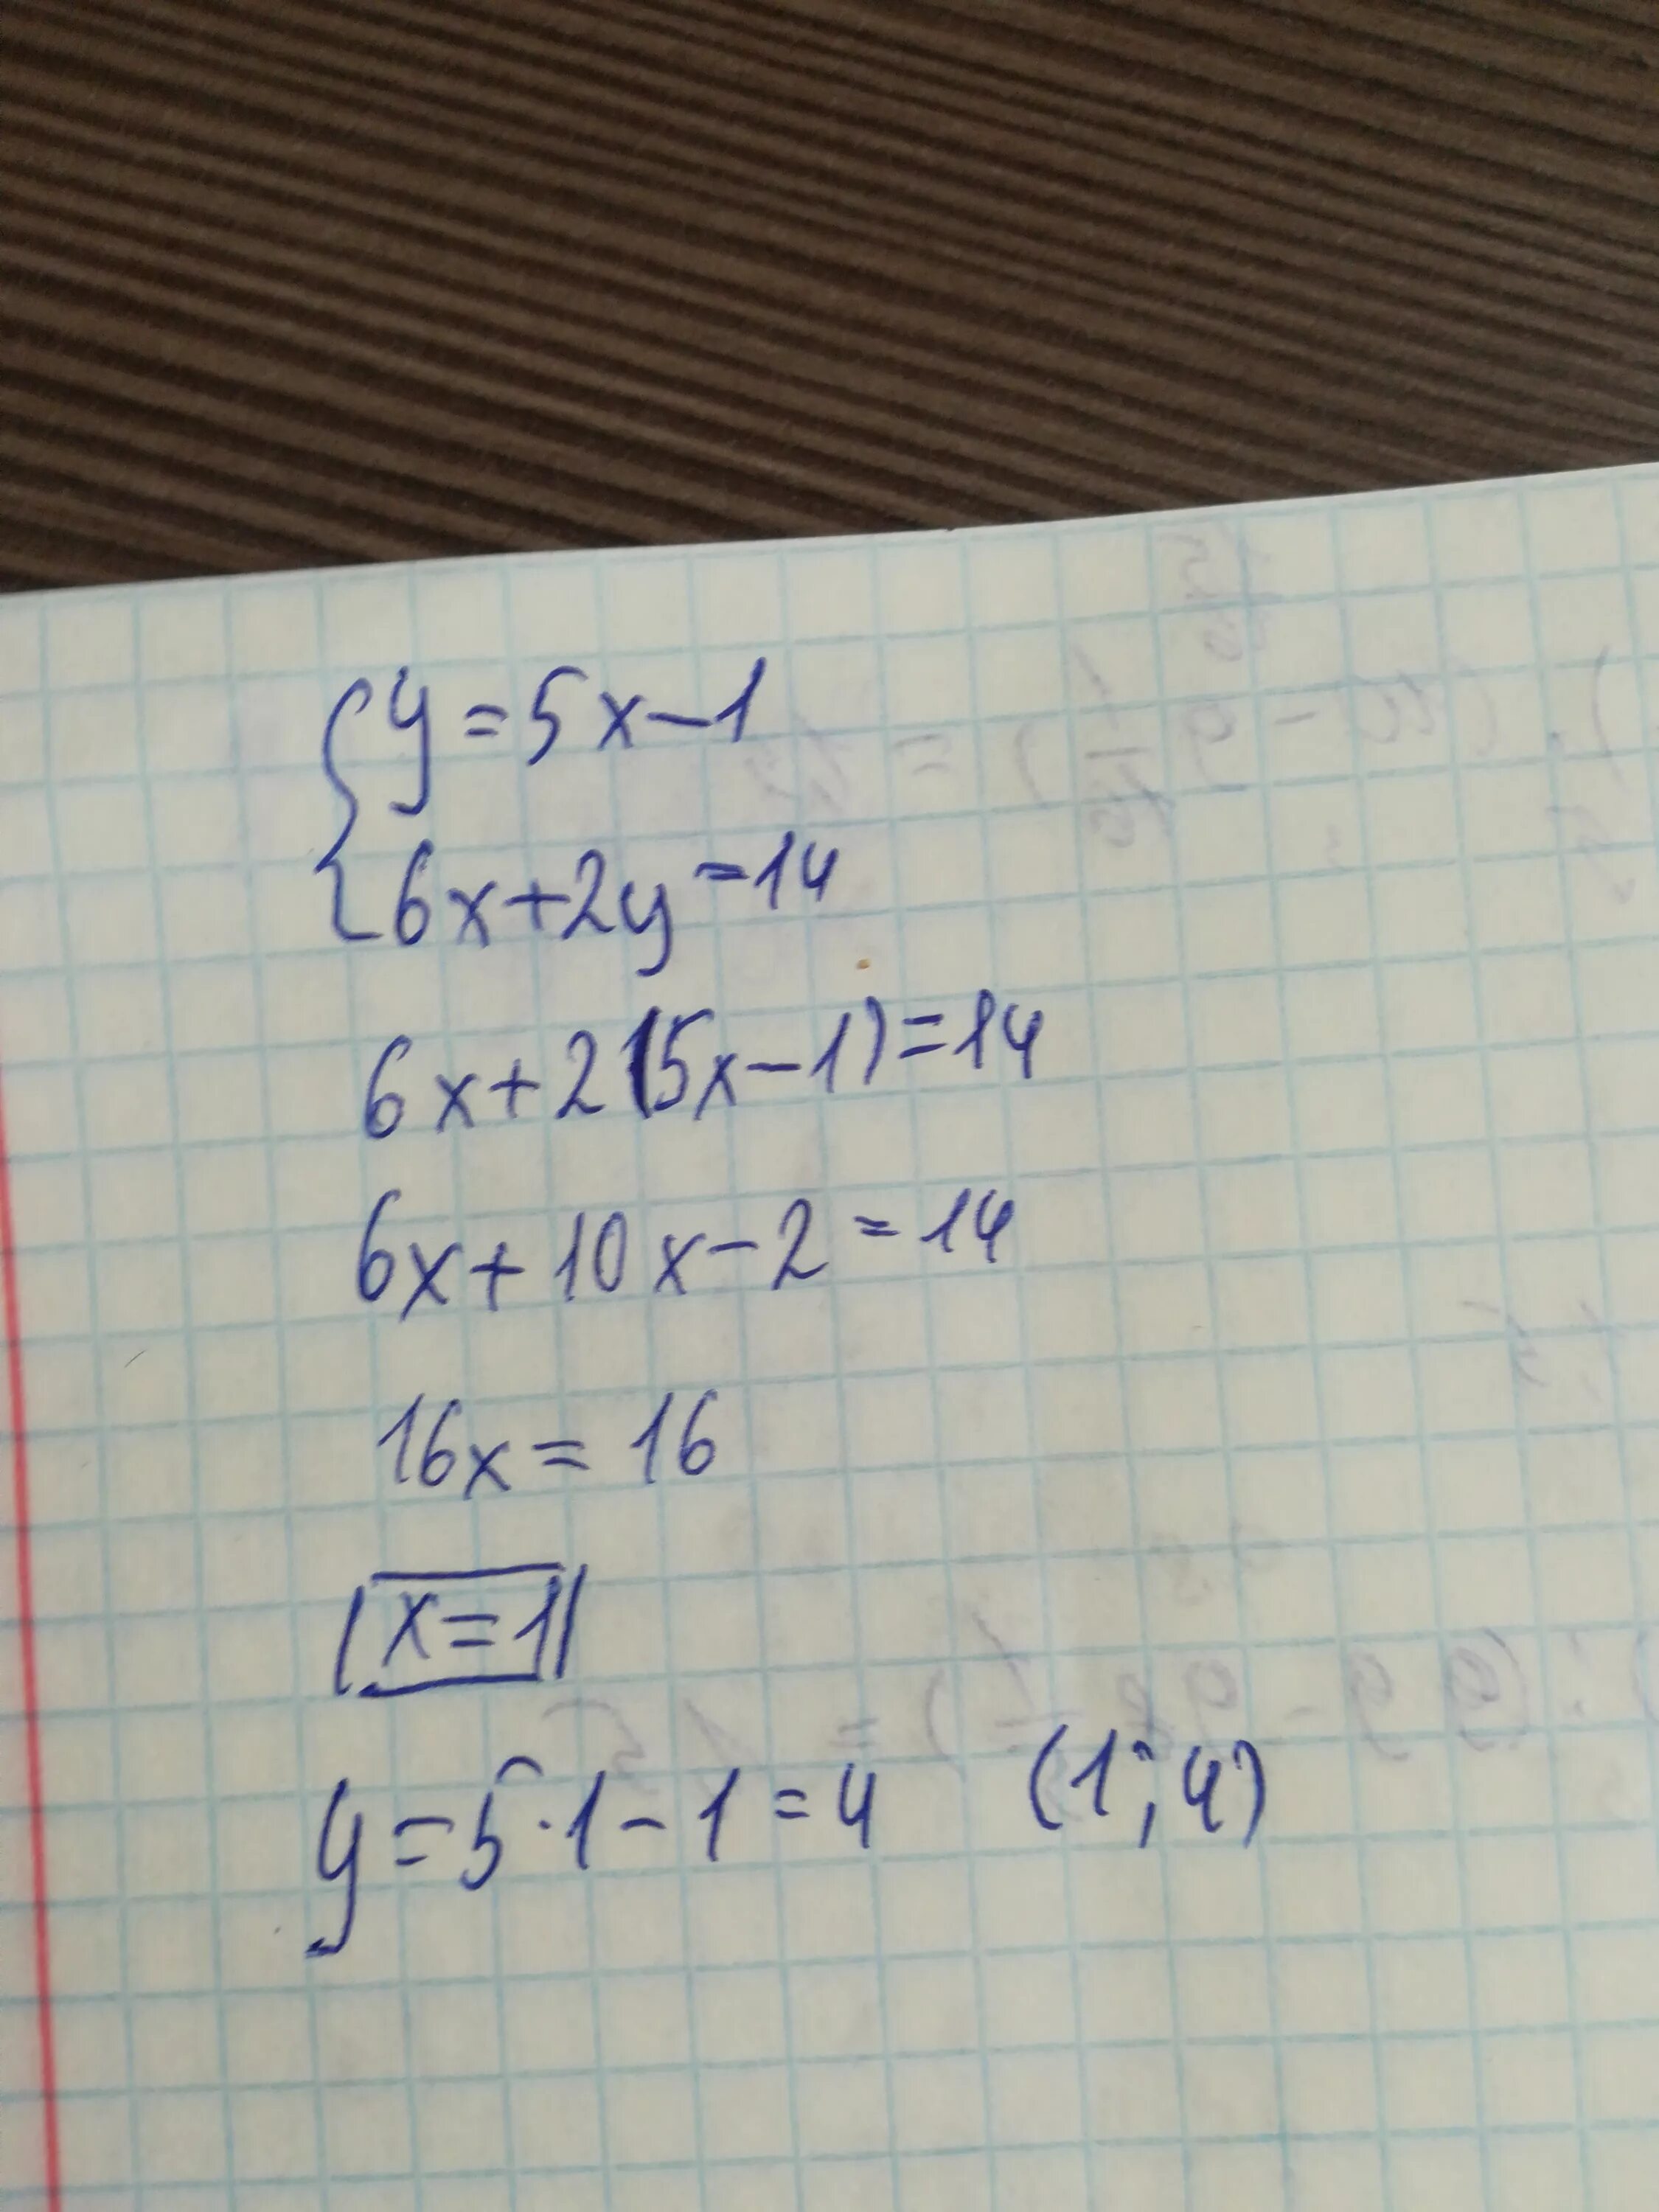 { y = 5x - 1
6x + 2y = 14
6x + 2(5x - 1) = 14
6x + 10x - 2 = 14
16x = 16
x = 1
y = 5 · 1 - 1 = 4 (1; 4)